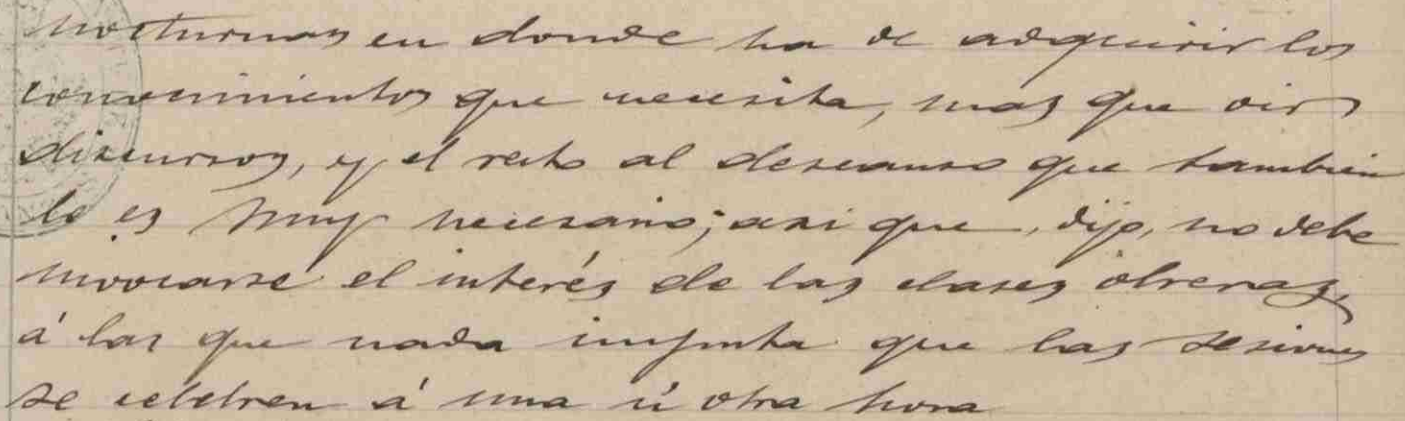 nocturnas en donde ha de adquirir los
conocimientos que necesita, mas que oir
discursos, y el resto al descanso que tambien
le es muy necesario; asi que, dijo, no debe
invocarse el interés de las clases obreras,
á las que nada importa que las sesiones
se celebren á una ú otra hora